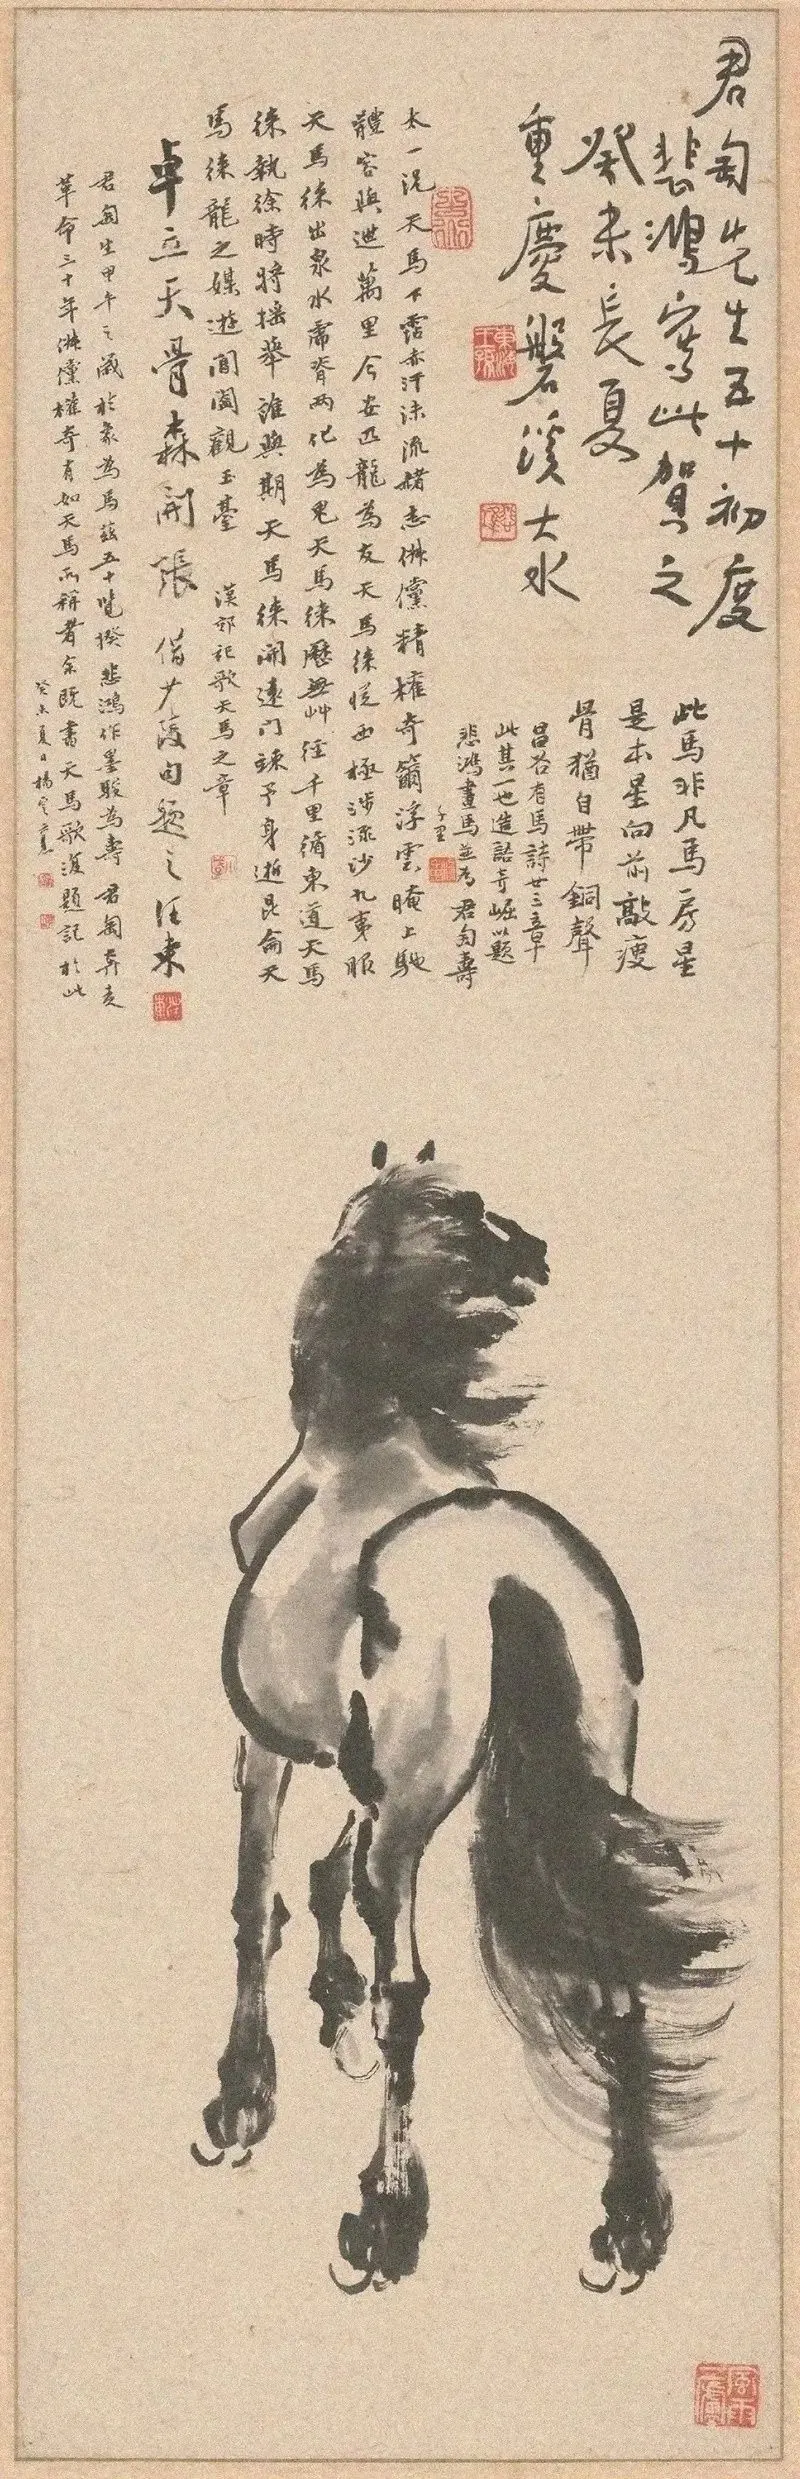 君匋先生五十初度
悲鴻寫此賀之
癸未長夏
重慶磐溪大水
此馬非凡馬房星
是本星向前敲瘦
骨猶自帶銅聲
昌谷有馬詩廿三章
此其一也造語奇崛以題
悲鴻畫馬並為君匋壽
千里
太一況天馬下霑赤汗沫流赭志俶儻精權奇籋浮雲晻上馳
體容與迣萬里今安匹龍為友天馬徠從西極涉流沙九夷服
天馬徠出泉水虎脊兩化為鬼天馬徠歷無艸徑千里循東道天馬
徠執徐時將搖舉誰與期天馬徠開遠門竦予身逝昆侖天
馬徠龍之媒遊閶闔觀玉臺 漢郊祀歌天馬之章
卓立天骨森開張 借少陵句題之汪東
君匋生甲午之歲於象為馬茲五十覽揆悲鴻作墨駿為壽君匋奔走
革命三十年俶儻權奇有如天馬所稱者余既書天馬歌復題記於此
癸未夏日楊
汪東
風雨